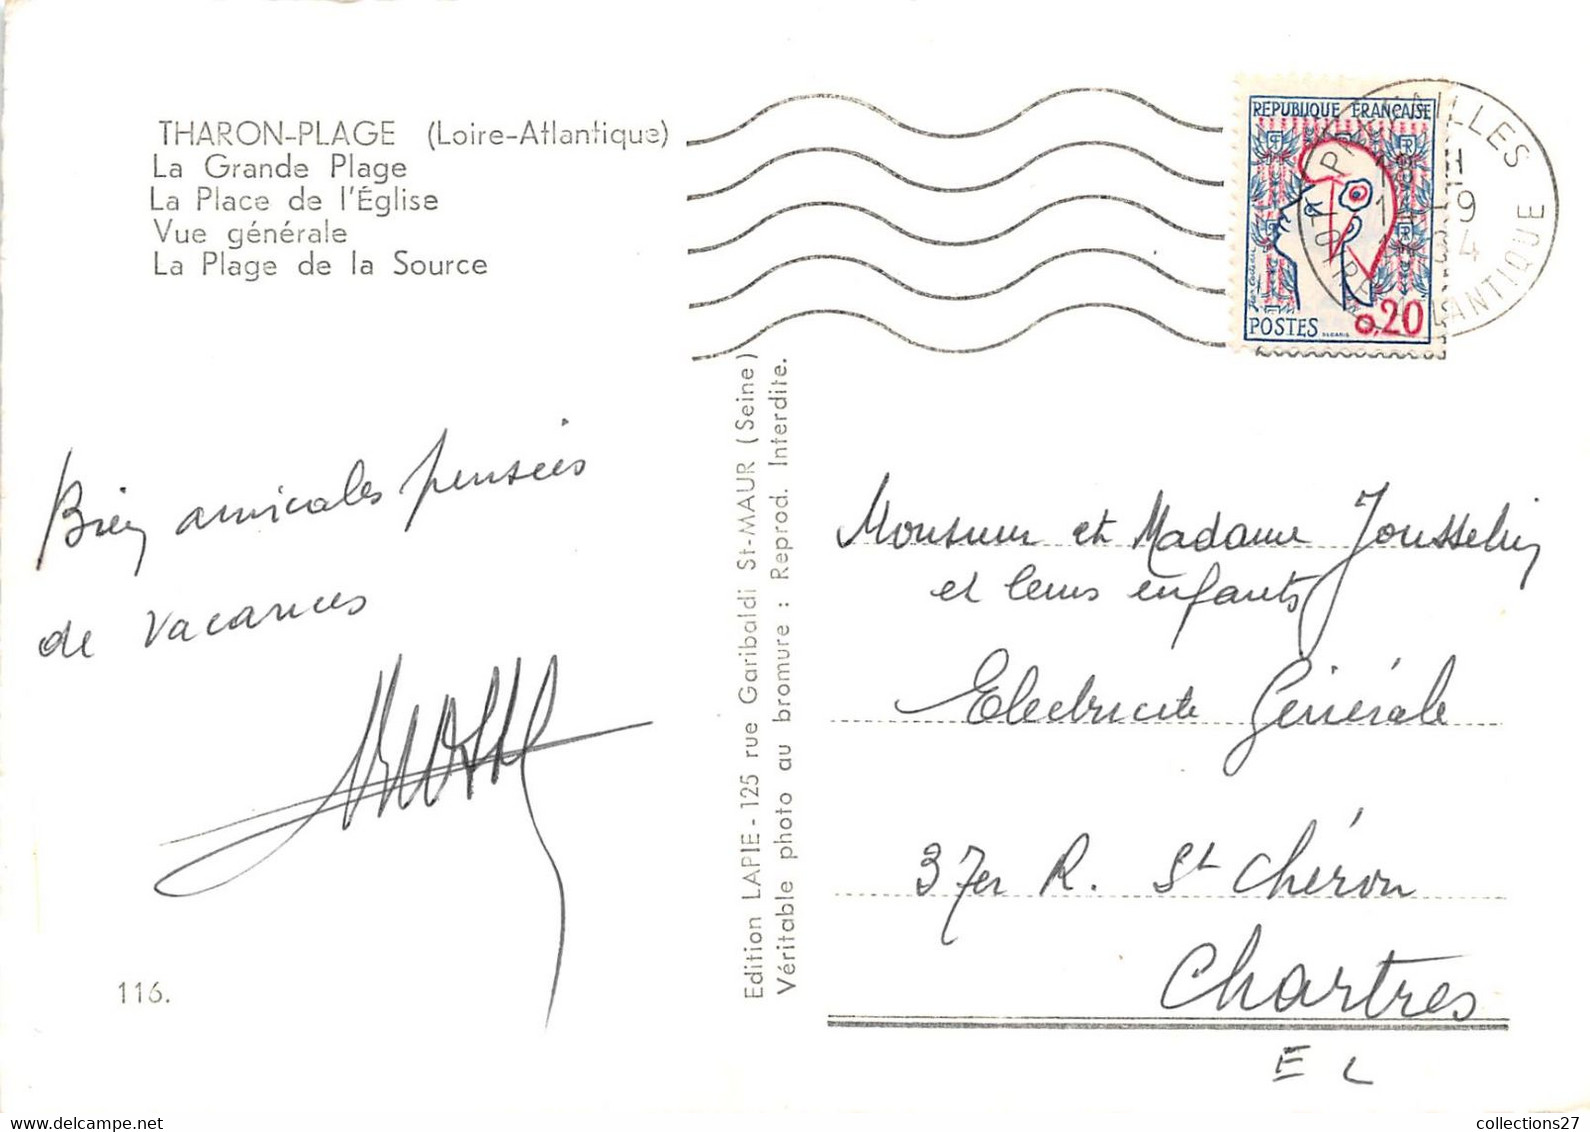 THARON-PLAGE (Loire-Atlantique)
La Grande Plage
La Place de l'Église
Vue générale
La Plage de la Source
REPUBLIQUE FRANÇAISE
POSTES
0,20
18 H
1 - 9
ATLANTIQUE
Bien amicales pensées
de vacances
116.
Edition LAPIE - 125 rue Garibaldi St-MAUR (Seine)
Véritable photo au bromure : Reprod. Interdite.
Monsieur et Madame Jousselin
et leurs enfants
Electricité Générale
37er R. St Chéron
Chartres
E L
collections27